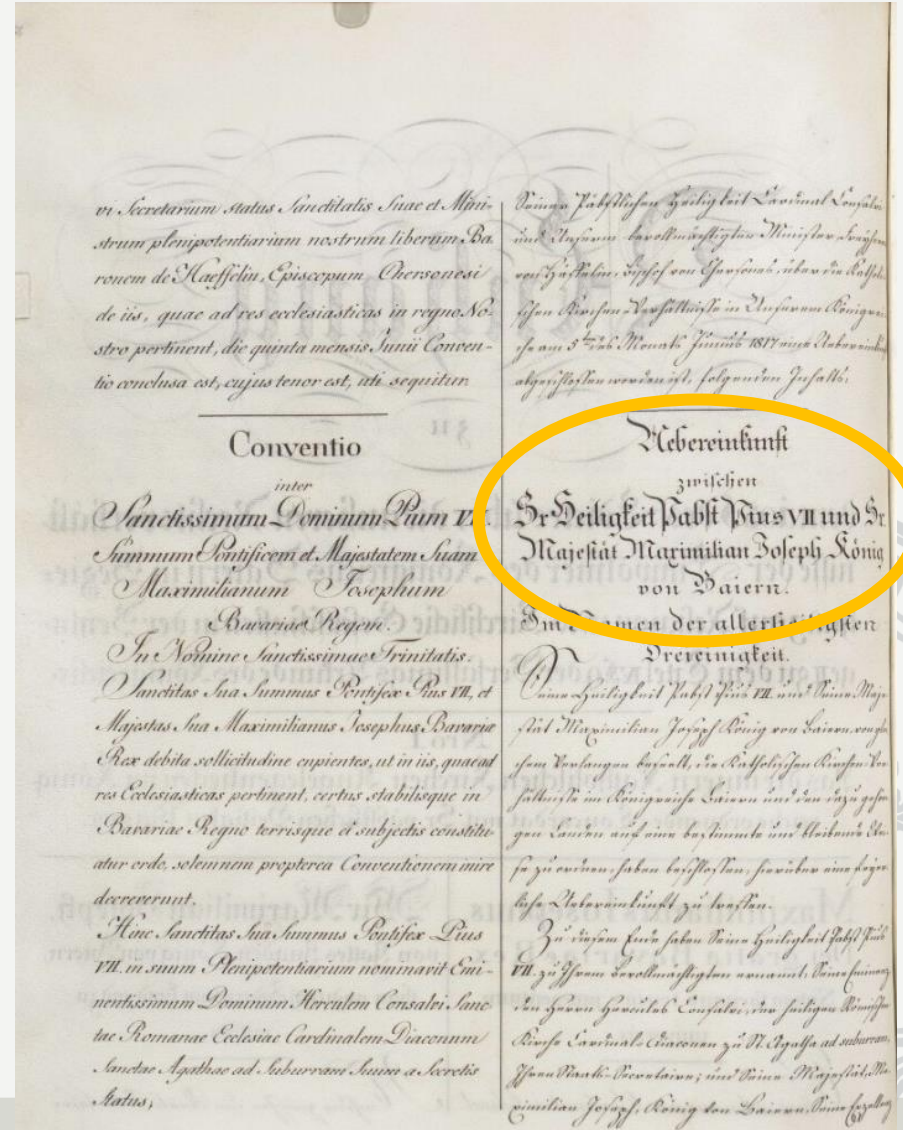 vi Secretarium status Sanctitatis Suae et Mini-
strum plenipotentiarium nostrum liberum Ba-
ronem de Haeffelin, Episcopum Chersonesi
de iis, quae ad res ecclesiasticas in regno No-
stro pertinent, die quinta mensis Junii Conven-
tio conclusa est, cujus tenor est, uti sequitur.
Conventio
inter
Sanctissimum Dominum Pium VII.
Summum Pontificem et Majestatem Suam
Maximilianum Josephum
Bavariae Regem.
In Nomine Sanctissimae Trinitatis.
Sanctitas Sua Summus Pontifex Pius VII, et
Majestas Sua Maximilianus Josephus Bavariae
Rex debita sollicitudine cupientes, ut in iis, quae ad
res Ecclesiasticas pertinent, certus stabilisque in
Bavariae Regno terrisque ei subjectis constitu-
atur ordo, solemnem propterea Conventionem inire
decreverunt.
Hinc Sanctitas Sua Summus Pontifex Pius
VII. in suum Plenipotentiarium nominavit Emi-
nentissimum Dominum Herculem Consalvi Sanc
tae Romanae Ecclesiae Cardinalem Diaconum
Sanctae Agathae ad Suburram Suum a Secretis
Status;
Seiner Päbstlichen Heiligkeit Cardinal Consalvi
und Unserm bevollmächtigten Minister Freyherrn
von Häffelin, Bischof von Chersones, über die Katholi-
schen Kirchen-Verhältnisse in Unserem Königrei-
che am 5ten des Monats Junius 1817 eine Uebereinkunft
abgeschlossen worden ist, folgenden Inhalts.
Uebereinkunft
zwischen
Sr Heiligkeit Pabst Pius VII und Sr
Majestät Maximilian Joseph König
von Baiern.
Im Namen der allerheiligsten
Dreieinigkeit.
Seine Heiligkeit Pabst Pius VII. und Seine Maje-
stät Maximilian Joseph König von Baiern, von glei-
chem Verlangen beseelt, die Katholischen Kirchen-Ver-
hältnisse im Königreiche Baiern und den dazu gehöri-
gen Landen auf eine bestimmte und bleibende Wei-
se zu ordnen, haben beschlossen, hierüber eine feyer-
liche Uebereinkunft zu treffen.
Zu diesem Ende haben Seine Heiligkeit Pabst Pius
VII. zu Ihrem Bevollmächtigten ernannt, Seine Eminenz
den Herrn Hercules Consalvi, der heiligen Römischen
Kirche Cardinal-Diaconen zu St. Agatha ad suburram,
Ihren Staats-Secretaire; und Seine Majestät, Ma-
ximilian Joseph, König von Baiern, Seine Exzellenz